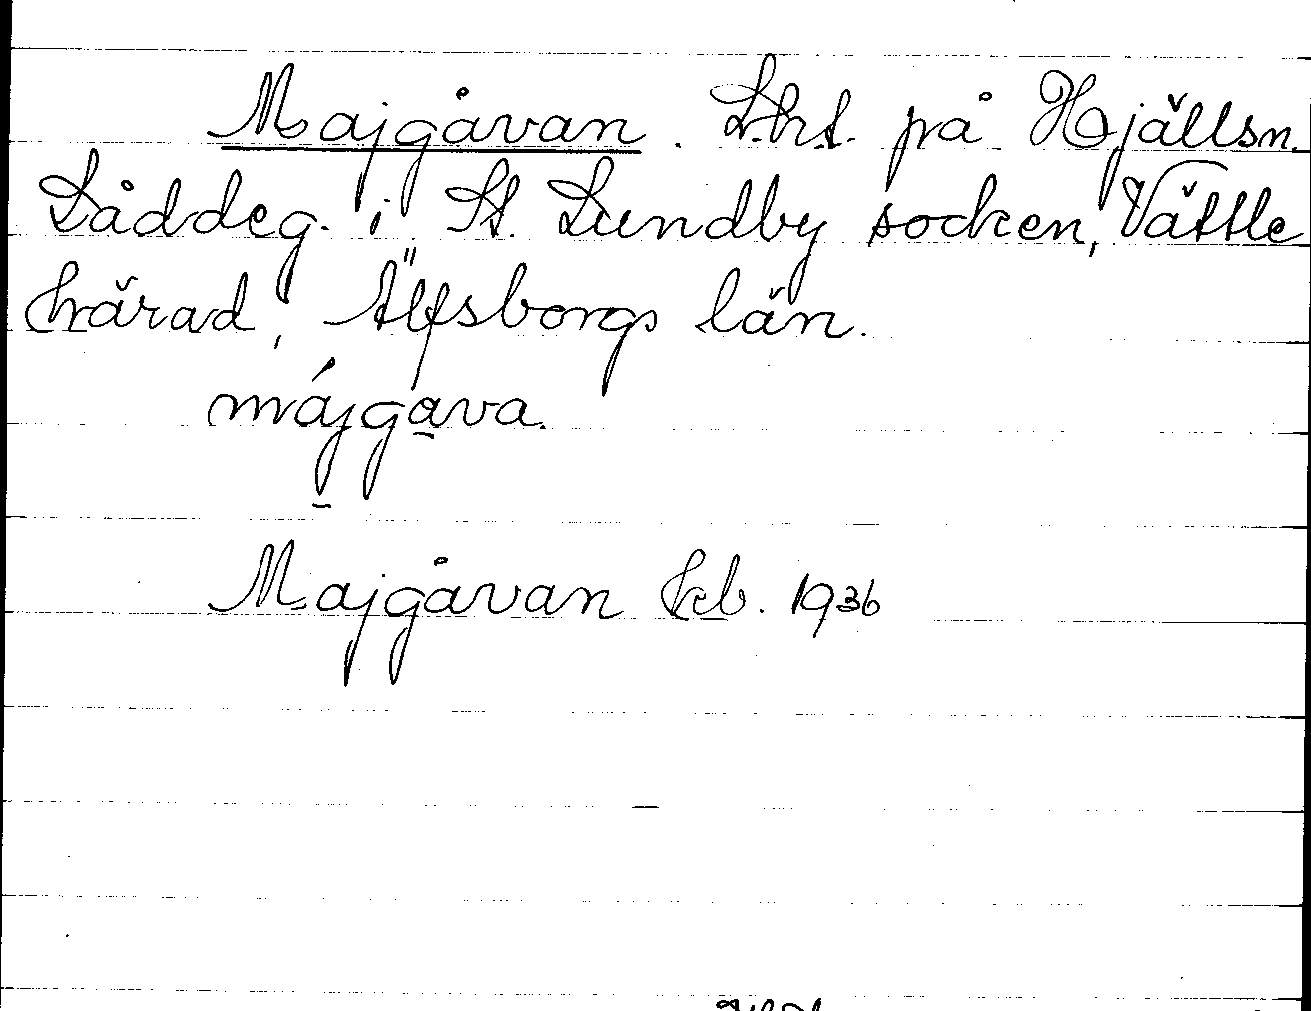 Majgåvan. Lht. på Hjällsn.
Låddeg. i St. Lundby socken, Vättle
härad, Älfsborgs län.
májgava.
Majgåvan kb. 1936